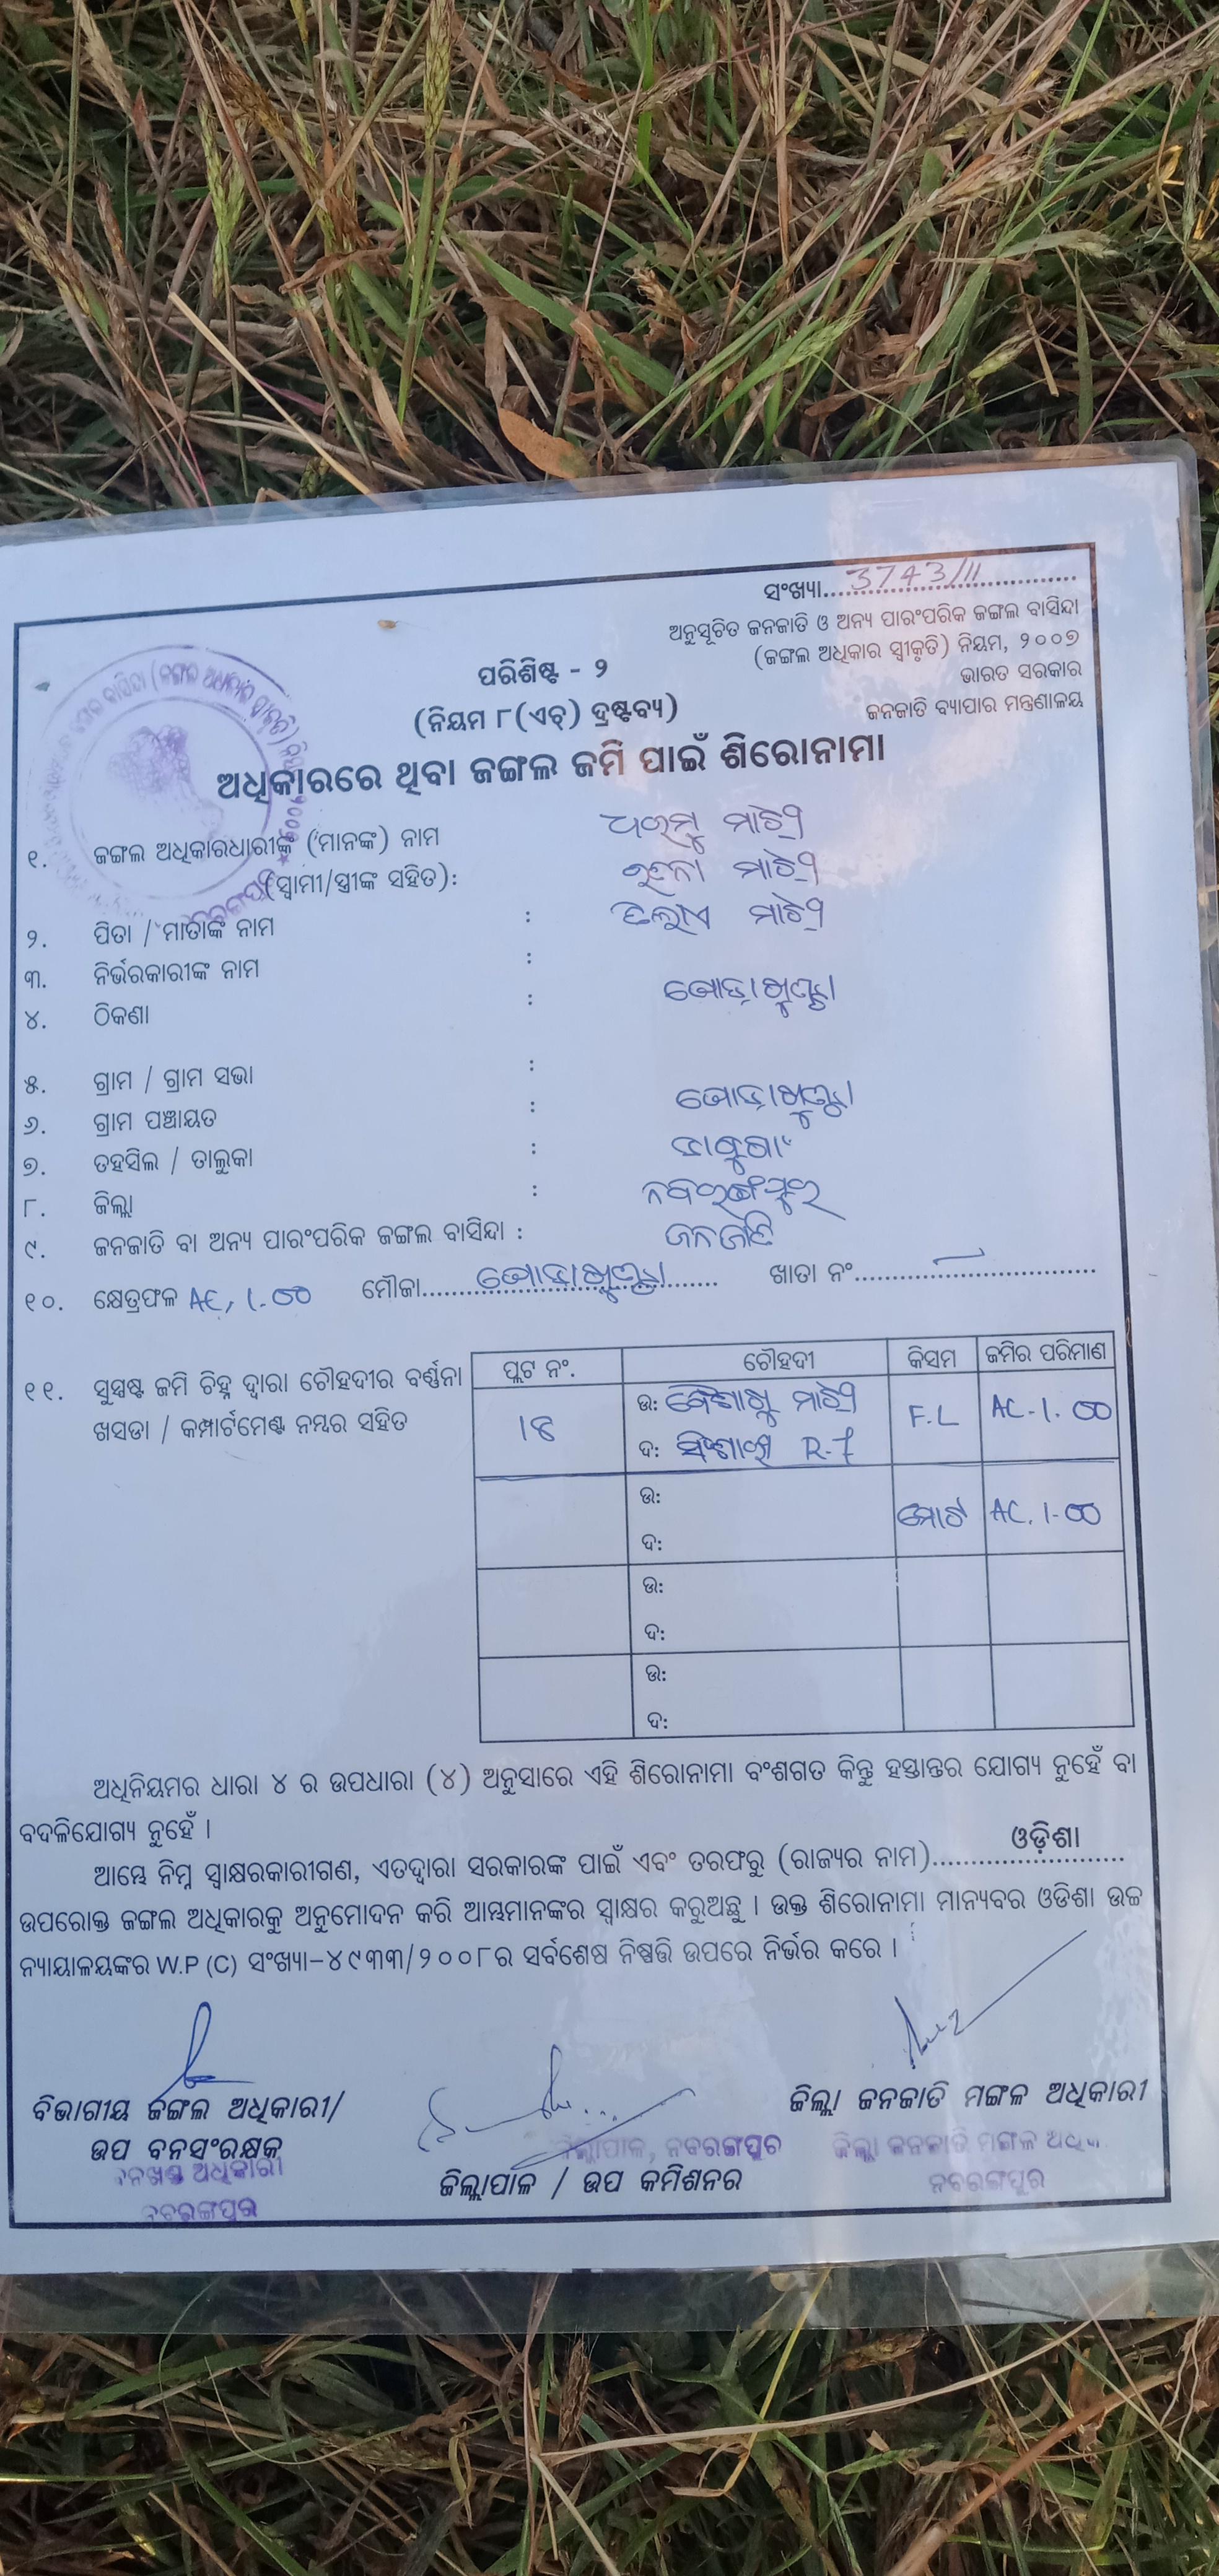 ସଂଖ୍ୟା....3743/11....
ଅନୁସୂଚିତ ଜନଜାତି ଓ ଅନ୍ୟ ପାରଂପରିକ ଜଙ୍ଗଲ ବାସିନ୍ଦା
(ଜଙ୍ଗଲ ଅଧିକାର ସ୍ୱୀକୃତି) ନିୟମ, ୨୦୦୭
ଭାରତ ସରକାର
ଜନଜାତି ବ୍ୟାପାର ମନ୍ତ୍ରଣାଳୟ
ପରିଶିଷ୍ଟ - ୨
(ନିୟମ ୮(ଏଚ୍) ଦ୍ରଷ୍ଟବ୍ୟ)
ଅଧିକାରରେ ଥିବା ଜଙ୍ଗଲ ଜମି ପାଇଁ ଶିରୋନାମା
୧. ଜଙ୍ଗଲ ଅଧିକାରଧାରୀଙ୍କ (ମାନଙ୍କ) ନାମ
(ସ୍ୱାମୀ/ସ୍ତ୍ରୀଙ୍କ ସହିତ):
୨. ପିତା / ମାତାଙ୍କ ନାମ :
୩. ନିର୍ଭରକାରୀଙ୍କ ନାମ :
୪. ଠିକଣା :
୫. ଗ୍ରାମ / ଗ୍ରାମ ସଭା :
୬. ଗ୍ରାମ ପଞ୍ଚାୟତ :
୭. ତହସିଲ / ତାଲୁକା :
୮. ଜିଲ୍ଲା : ନବରଙ୍ଗପୁର
୯. ଜନଜାତି ବା ଅନ୍ୟ ପାରଂପରିକ ଜଙ୍ଗଲ ବାସିନ୍ଦା : ଜନଜାତି
୧୦. କ୍ଷେତ୍ରଫଳ AC, 1.00 ମୌଜା.... ଖାତା ନଂ....
୧୧. ସୁସ୍ପଷ୍ଟ ଜମି ଚିହ୍ନ ଦ୍ୱାରା ଚୌହଦୀର ବର୍ଣ୍ଣନା
ଖସଡା / କମ୍ପାର୍ଟମେଣ୍ଟ ନମ୍ବର ସହିତ
ପ୍ଲଟ ନଂ. ଚୌହଦୀ କିସମ ଜମିର ପରିମାଣ
18 ଉ: F.L AC-1.00
ଦ: R-7
ଉ: ମୋଟ AC. 1-00
ଦ:
ଉ:
ଦ:
ଉ:
ଦ:
ଅଧିନିୟମର ଧାରା ୪ ର ଉପଧାରା (୪) ଅନୁସାରେ ଏହି ଶିରୋନାମା ବଂଶଗତ କିନ୍ତୁ ହସ୍ତାନ୍ତର ଯୋଗ୍ୟ ନୁହେଁ ବା
ବଦଳିଯୋଗ୍ୟ ନୁହେଁ ।
ଆମ୍ଭେ ନିମ୍ନ ସ୍ୱାକ୍ଷରକାରୀଗଣ, ଏତଦ୍ୱାରା ସରକାରଙ୍କ ପାଇଁ ଏବଂ ତରଫରୁ (ରାଜ୍ୟର ନାମ)....ଓଡ଼ିଶା....
ଉପରୋକ୍ତ ଜଙ୍ଗଲ ଅଧିକାରକୁ ଅନୁମୋଦନ କରି ଆମ୍ଭମାନଙ୍କର ସ୍ୱାକ୍ଷର କରୁଅଛୁ । ଉକ୍ତ ଶିରୋନାମା ମାନ୍ୟବର ଓଡିଶା ଉଚ୍ଚ
ନ୍ୟାୟାଳୟଙ୍କର W.P (C) ସଂଖ୍ୟା-୪୯୩୩/୨୦୦୮ର ସର୍ବଶେଷ ନିଷ୍ପତ୍ତି ଉପରେ ନିର୍ଭର କରେ ।
ବିଭାଗୀୟ ଜଙ୍ଗଲ ଅଧିକାରୀ/
ଉପ ବନସଂରକ୍ଷକ
ବନଖଣ୍ଡ ଅଧିକାରୀ
ନବରଙ୍ଗପୁର
ଜିଲ୍ଲାପାଳ, ନବରଙ୍ଗପୁର
ଜିଲ୍ଲାପାଳ / ଉପ କମିଶନର
ଜିଲ୍ଲା ଜନଜାତି ମଙ୍ଗଳ ଅଧିକାରୀ
ଜିଲ୍ଲା ଜନଜାତି ମଙ୍ଗଳ
ନବରଙ୍ଗପୁର